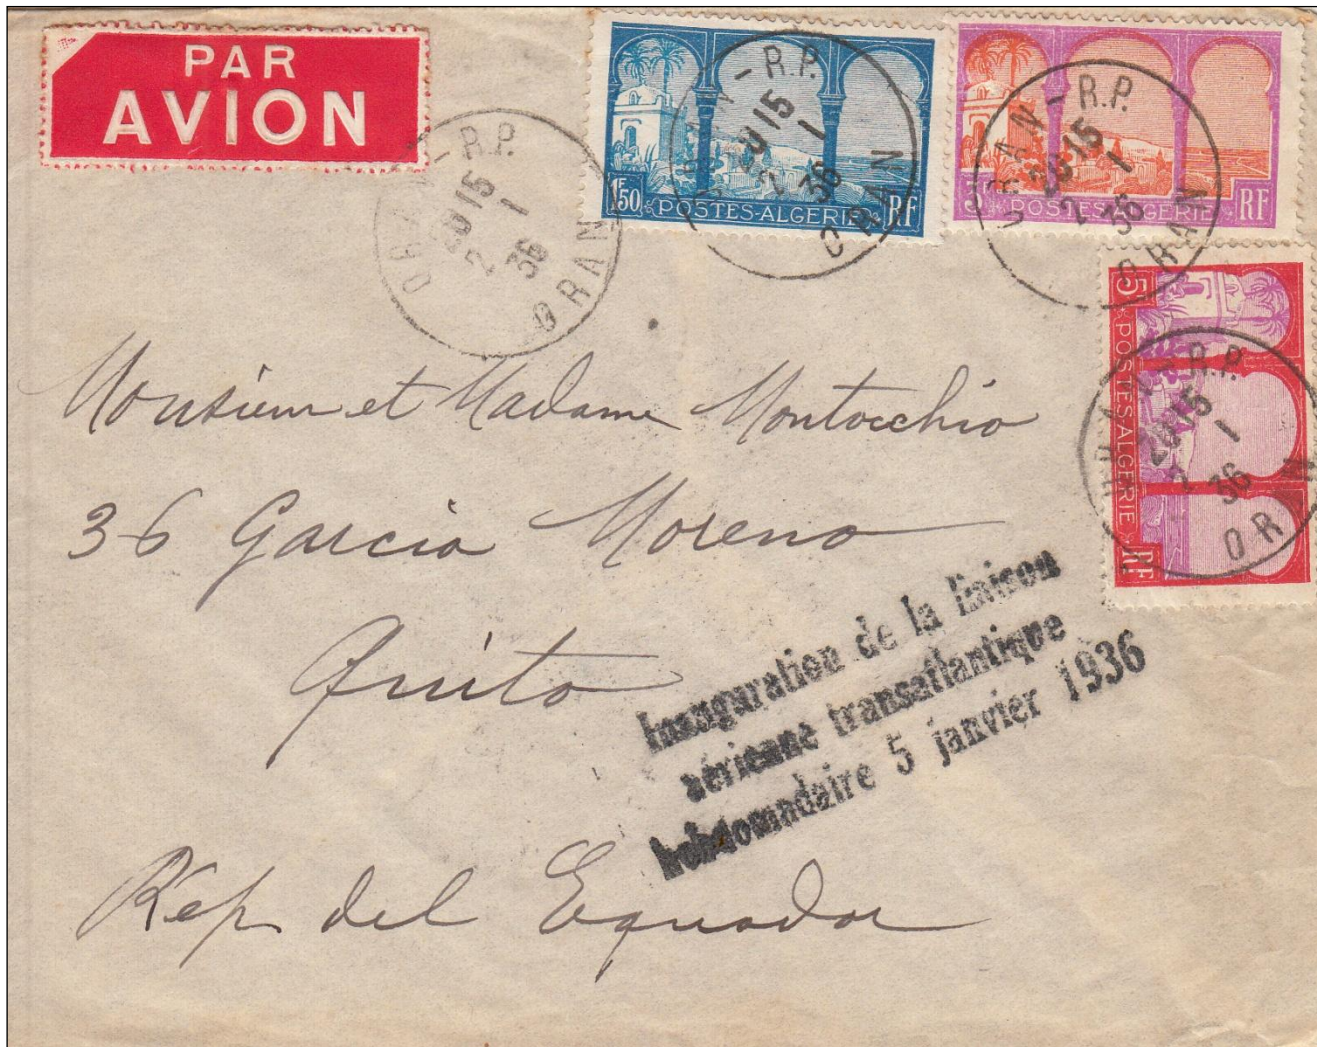 PAR
AVION
ORAN - R.P.
20 15
2 1
36
ORAN
ORAN - R.P.
20 15
2 1
36
ORAN
1F50 POSTES-ALGERIE RF
ORAN - R.P.
20 15
2 1
36
ORAN
3F POSTES-ALGERIE RF
5F POSTES-ALGERIE RF
ORAN - R.P.
20 15
2 1
36
ORAN
Monsieur et Madame Montocchio
36 Garcia Moreno
Quito
Inauguration de la liaison
aérienne transatlantique
hebdomadaire 5 janvier 1936
Rép del Equador